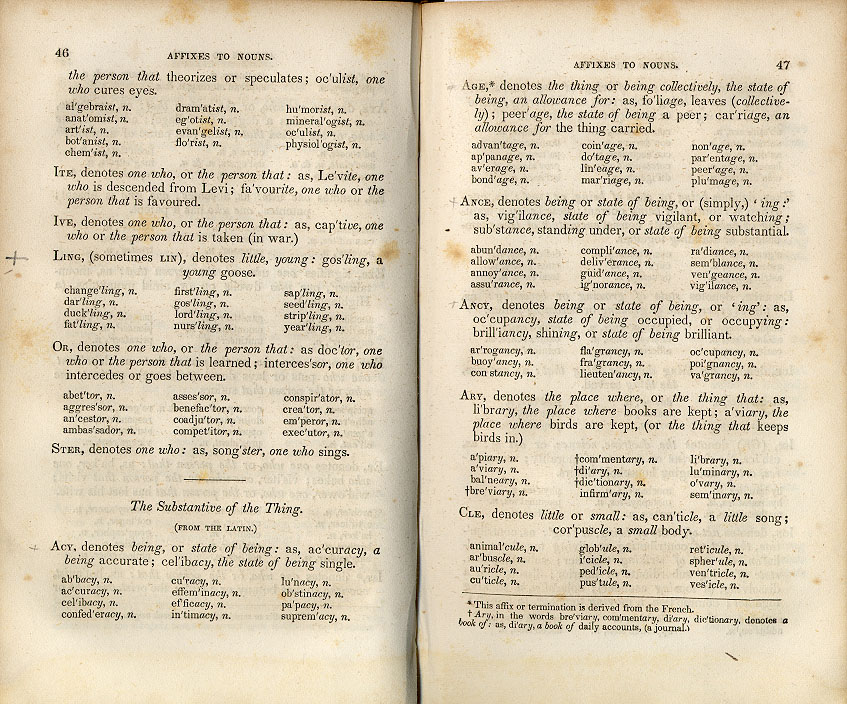 46
AFFIXES TO NOUNS.
the person that theorizes or speculates; oc'ulist, one
who cures eyes.
al'gebraist, n. dram'atist, n. hu'morist, n.
anat'omist, n. eg'otist, n. mineral'ogist, n.
art'ist, n. evan'gelist, n. oc'ulist, n.
bot'anist, n. flo'rist, n. physiol'ogist, n.
chem'ist, n.
ITE, denotes one who, or the person that: as, Le'vite, one
who is descended from Levi; fa'vourite, one who or the
person that is favoured.
IVE, denotes one who, or the person that: as, cap'tive, one
who or the person that is taken (in war.)
LING, (sometimes LIN), denotes little, young: gos'ling, a
young goose.
change'ling, n. first'ling, n. sap'ling, n.
dar'ling, n. gos'ling, n. seed'ling, n.
duck'ling, n. lord'ling, n. strip'ling, n.
fat'ling, n. nurs'ling, n. year'ling, n.
OR, denotes one who, or the person that: as doc'tor, one
who or the person that is learned; interces'sor, one who
intercedes or goes between.
abet'tor, n. asses'sor, n. conspir'ator, n.
aggres'sor, n. benefac'tor, n. crea'tor, n.
an'cestor, n. coadju'tor, n. em'peror, n.
ambas'sador, n. compet'itor, n. exec'utor, n.
STER, denotes one who: as, song'ster, one who sings.
The Substantive of the Thing.
(FROM THE LATIN.)
ACY, denotes being, or state of being: as, ac'curacy, a
being accurate; cel'ibacy, the state of being single.
ab'bacy, n. cu'racy, n. lu'nacy, n.
ac'curacy, n. effem'inacy, n. ob'stinacy, n.
cel'ibacy, n. ef'ficacy, n. pa'pacy, n.
confed'eracy, n. in'timacy, n. suprem'acy, n.
AFFIXES TO NOUNS.
47
AGE,* denotes the thing or being collectively, the state of
being, an allowance for: as, fo'liage, leaves (collective-
ly); peer'age, the state of being a peer; car'riage, an
allowance for the thing carried.
advan'tage, n. coin'age, n. non'age, n.
ap'panage, n. do'tage, n. par'entage, n.
av'erage, n. lin'eage, n. peer'age, n.
bond'age, n. mar'riage, n. plu'mage, n.
ANCE, denotes being or state of being, or (simply,) 'ing:'
as, vig'ilance, state of being vigilant, or watching;
sub'stance, standing under, or state of being substantial.
abun'dance, n. compli'ance, n. ra'diance, n.
allow'ance, n. deliv'erance, n. sem'blance, n.
annoy'ance, n. guid'ance, n. ven'geance, n.
assu'rance, n. ig'norance, n. vig'ilance, n.
ANCY, denotes being or state of being, or 'ing': as,
oc'cupancy, state of being occupied, or occupying:
brill'iancy, shining, or state of being brilliant.
ar'rogancy, n. fla'grancy, n. oc'cupancy, n.
buoy'ancy, n. fra'grancy, n. poi'gnancy, n.
con stancy, n. lieuten'ancy, n. va'grancy, n.
ARY, denotes the place where, or the thing that: as,
li'brary, the place where books are kept; a'viary, the
place where birds are kept, (or the thing that keeps
birds in.)
a'piary, n. †com'mentary, n. li'brary, n.
a'viary, n. †di'ary, n. lu'minary, n.
bal'neary, n. †dic'tionary, n. o'vary, n.
†bre'viary, n. infirm'ary, n. sem'inary, n.
CLE, denotes little or small: as, can'ticle, a little song;
cor'puscle, a small body.
animal'cule, n. glob'ule, n. ret'icule, n.
ar'buscle, n. i'cicle, n. spher'ule, n.
au'ricle, n. ped'icle, n. ven'tricle, n.
cu'ticle, n. pus'tule, n. ves'icle, n.
* This affix or termination is derived from the French.
† Ary, in the words bre'viary, com'mentary, di'ary, dic'tionary, denotes a
book of: as, di'ary, a book of daily accounts, (a journal.)